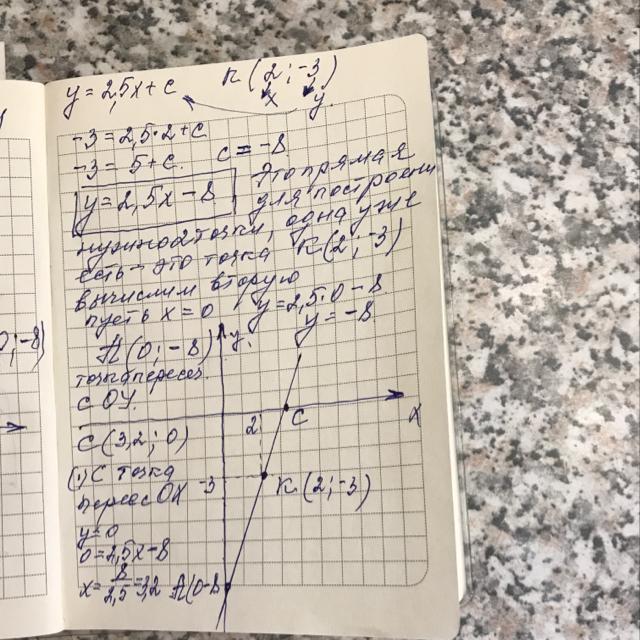 y = 2,5x + c
K (2 ; -3)
x y
-3 = 2,5·2 + c
-3 = 5 + c. c = -8
y = 2,5x - 8
Это прямая
для построени
нужно 2 точки, одна уже
есть - это точка K (2; -3)
вычислим вторую
пусть x = 0 y = 2,5·0 - 8
y = -8
A (0; -8)
y.
точка пересеч.
с OY.
C (3,2; 0)
2
C
x
(·) C точка
пересеч OX
-3
K (2; -3)
y = 0
0 = 2,5x - 8
x = 8/2,5 = 3,2
A(0-8
0; -8)